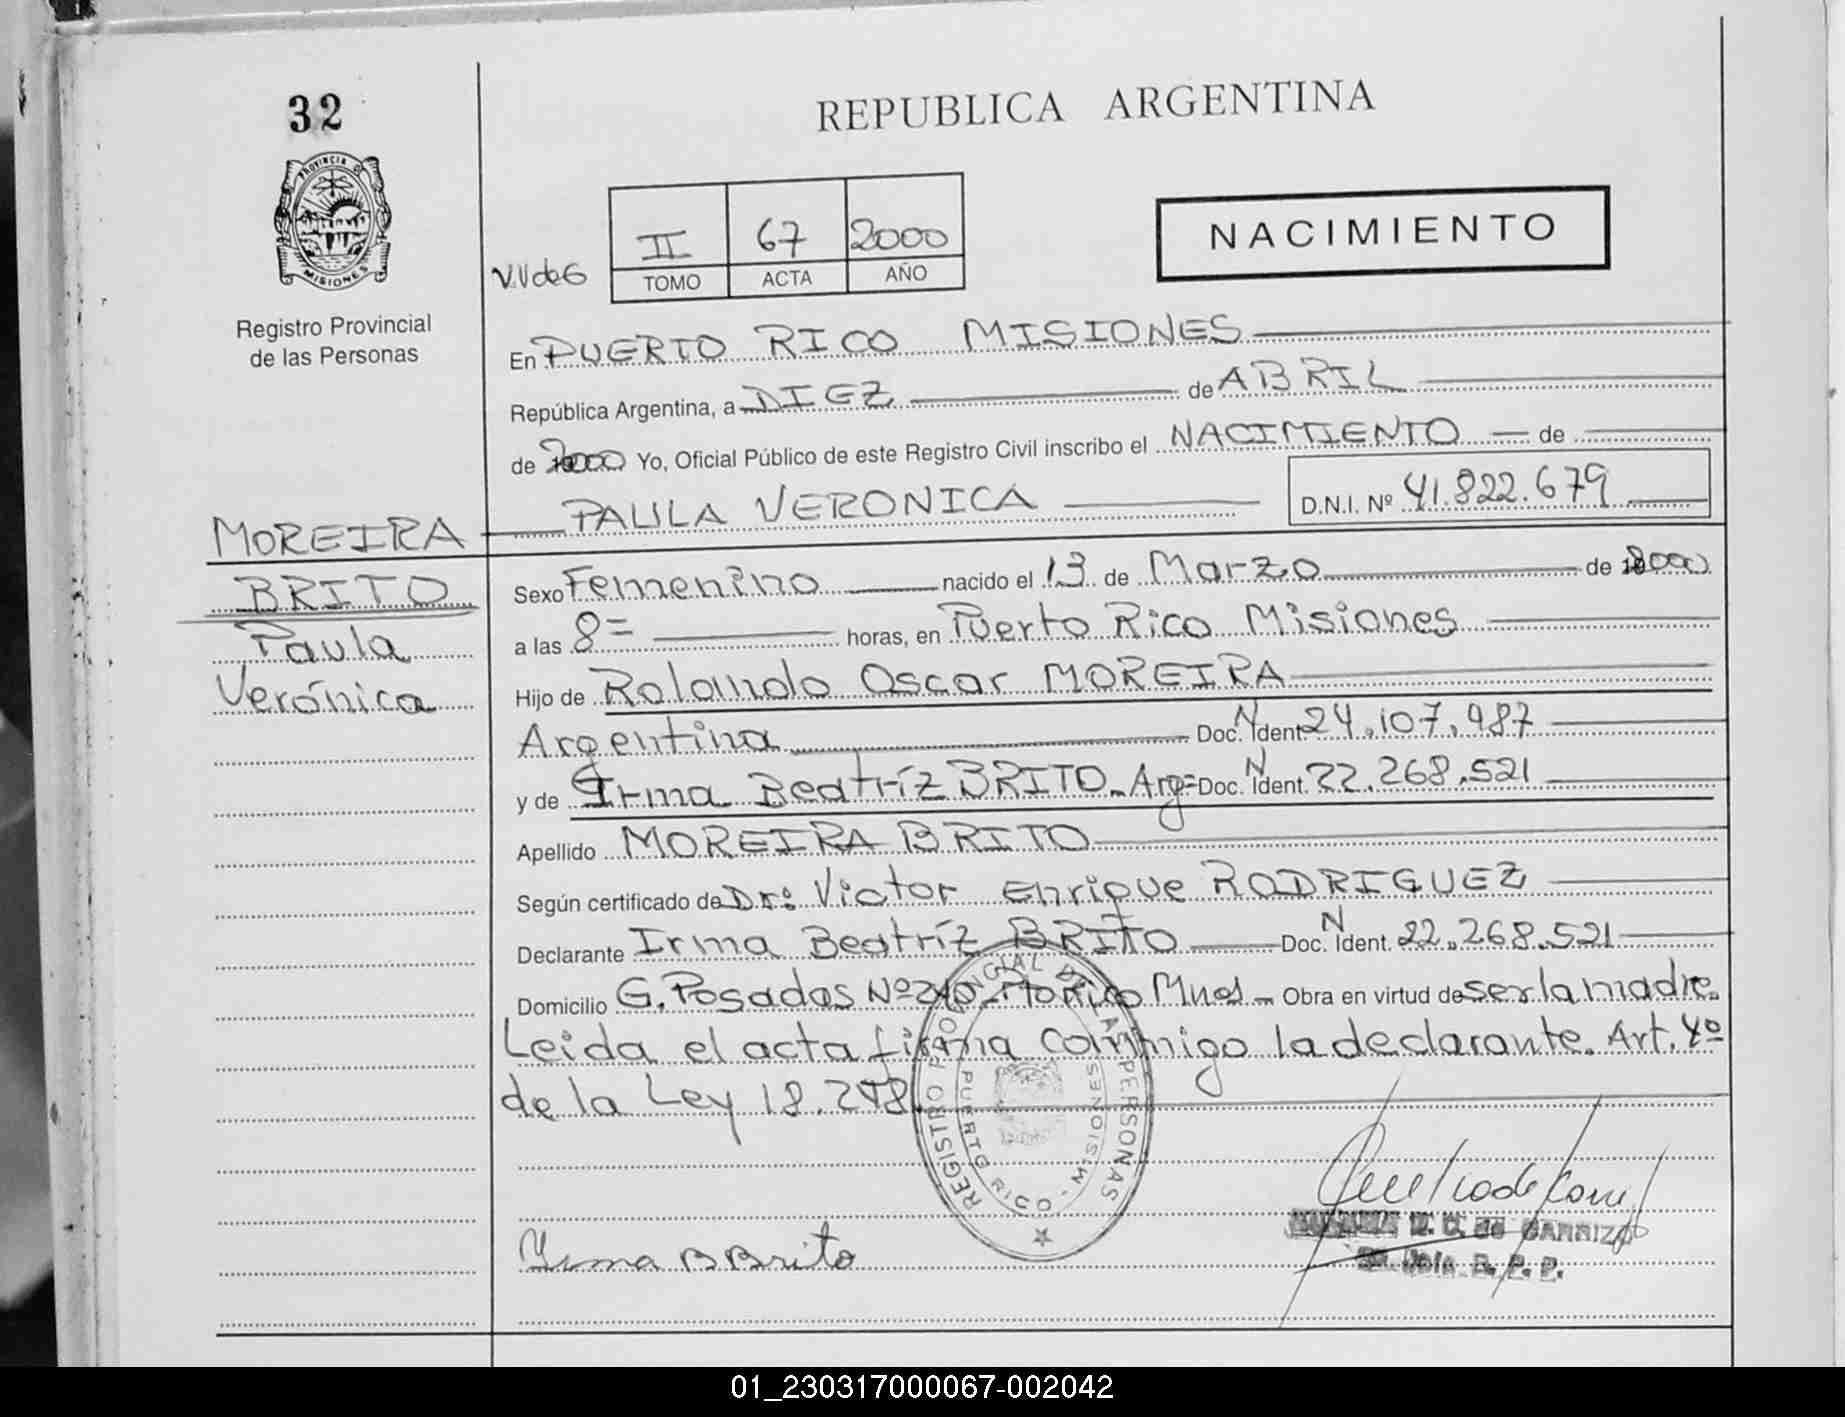 32
REPUBLICA ARGENTINA
PROVINCIA DE
MISIONES
Registro Provincial
de las Personas
NACIMIENTO
II 67 2000
TOMO ACTA AÑO
En PUERTO RICO MISIONES
República Argentina, a DIEZ de ABRIL
de 2000 Yo, Oficial Público de este Registro Civil inscribo el NACIMIENTO de
MOREIRA PAULA VERONICA D.N.I. Nº 41.822.679
BRITO
Paula
Verónica
Sexo Femenino nacido el 13 de Marzo de 2000
a las 8= horas, en Puerto Rico Misiones
Hijo de Rolando Oscar MOREIRA
Argentina Doc. N Ident 24.107.987
y de Irma Beatríz BRITO. Arg= Doc. N Ident. 22.268.521
Apellido MOREIRA BRITO
Según certificado de Dr: Victor Enrique RODRIGUEZ
Declarante Irma Beatríz BRITO Doc. N Ident. 22.268.521
Domicilio G. Posadas Nº Pto Rico Mnes - Obra en virtud de ser la madre.
Leida el acta firma conmigo la declarante. Art. 4º
de la Ley 18.248
REGISTRO PROVINCIAL DE LAS PERSONAS
PUERTO RICO - MISIONES
Irma B Brito
de CARRIZO
R. P. P.
01_230317000067-002042